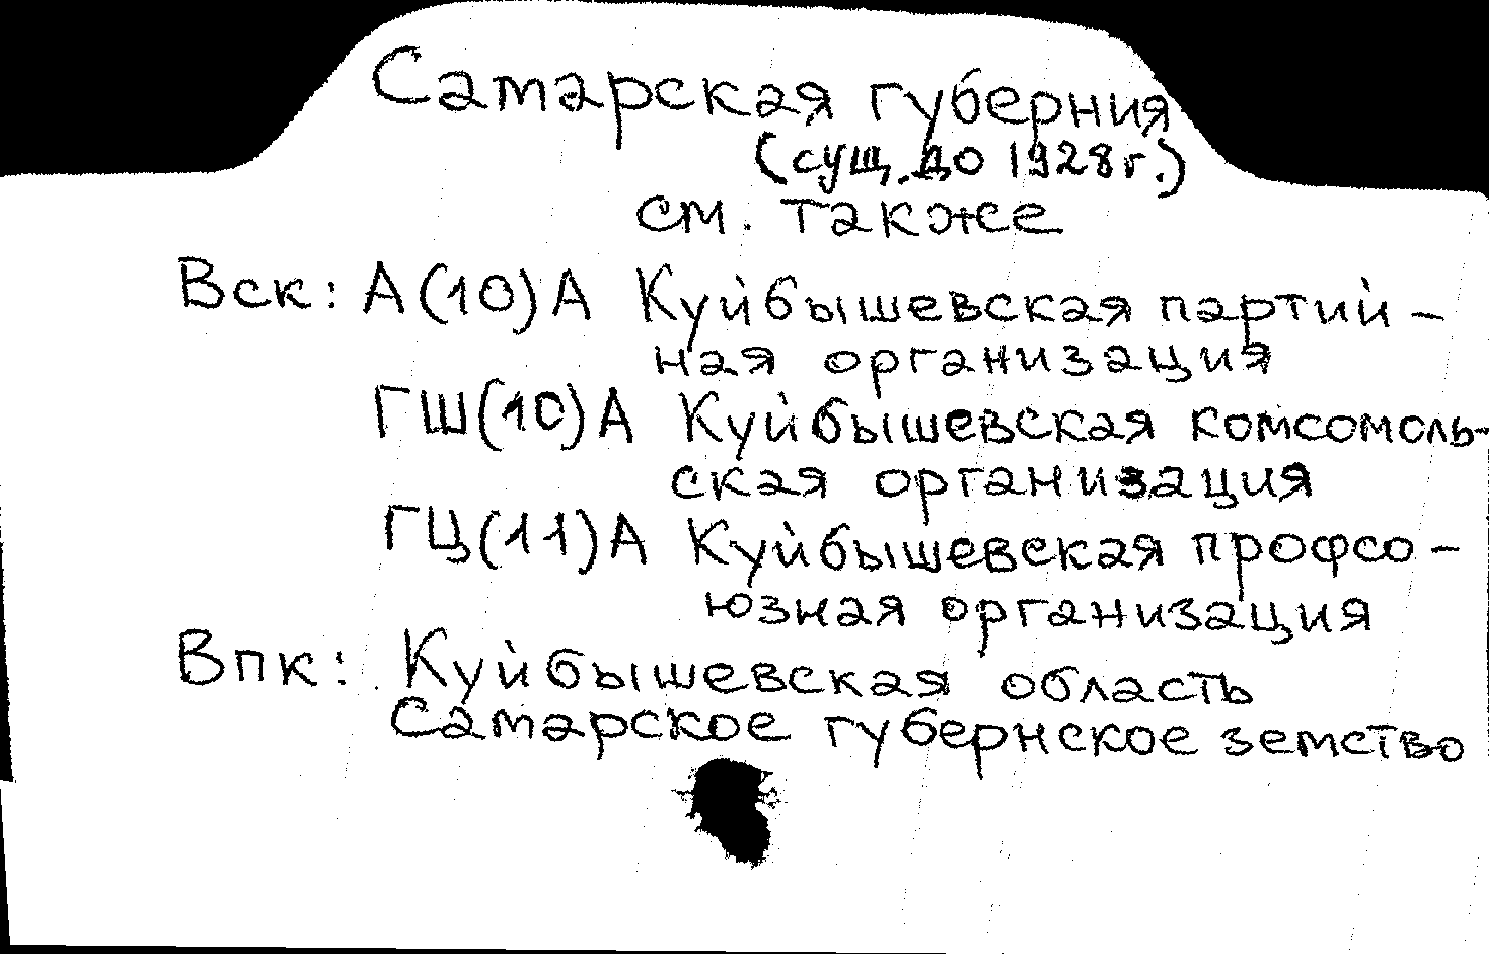 Самарская губерния
(сущ. до 1928 г.)
см. также
Вск: А(10)А Куйбышевская партий-
ная организация
ГШ(10)А Куйбышевская комсомоль-
ская организация
ГЦ(11)А Куйбышевская профсо-
юзная организация
Впк: Куйбышевская область
Самарское губернское земство